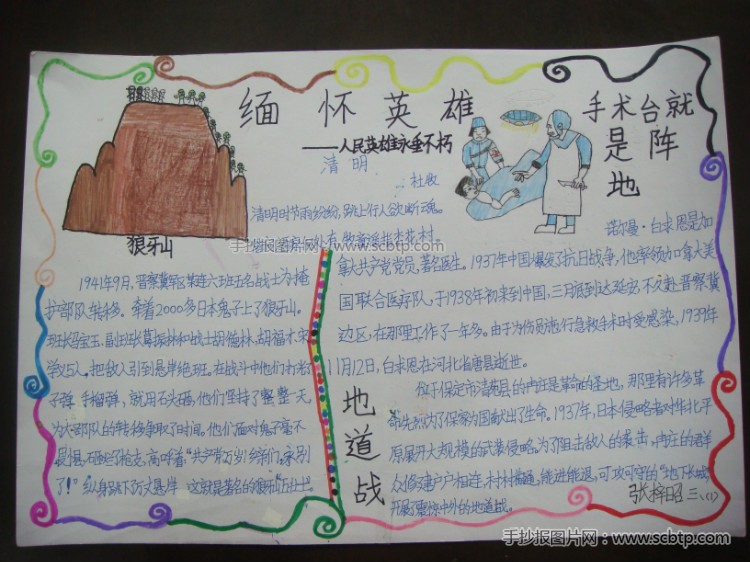 缅怀英雄
——人民英雄永垂不朽
清明
杜牧
清明时节雨纷纷,路上行人欲断魂。
借问酒家何处有,牧童遥指杏花村
狼牙山
1941年9月,晋察冀军区某连六班五名战士为掩
护部队转移。牵着2000多日本鬼子上了狼牙山。
班长马宝玉、副班长葛振林和战士胡德林,胡福才、宋
学义5人。把敌人引到悬岸绝班。在战斗中他们打光了
子弹、手榴弹,就用石头砸,他们坚持了整整一天,
为大部队的转移争取了时间。他们面对鬼子毫不
畏惧,砸毁了枪支,高呼着“共产党万岁!乡亲们,永别
了!”纵身跳下万丈悬岸,这就是著名的“狼牙山五壮士”
手术台就
是阵
地
诺尔曼·白求恩是加
拿大共产党党员,著名医生。1937年中国爆发了抗日战争,他率领加拿大美
国联合医疗队,于1938年初来到中国,三月底到达延安,不久赴晋察冀
边区,在那里工作了一年多。由于为伤员施行急救手术时受感染,1939年
11月12日,白求恩在河北省唐县逝世。
地道战
位于保定市清苑县的冉庄是革命的圣地,那里有许多革
命先烈为了保家为国献出了生命。1937年,日本侵略者对华北平
原展开大规模的武装侵略,为了阻击敌人的袭击,冉庄的君群
众修建户户相连,村村相通,能进能退,可攻可守的“地下长城”
开展了震惊中外的地道战。
张梓昭 三、(1)
手抄报图片网 www.scbtp.com
手抄报图片网:www.scbtp.com